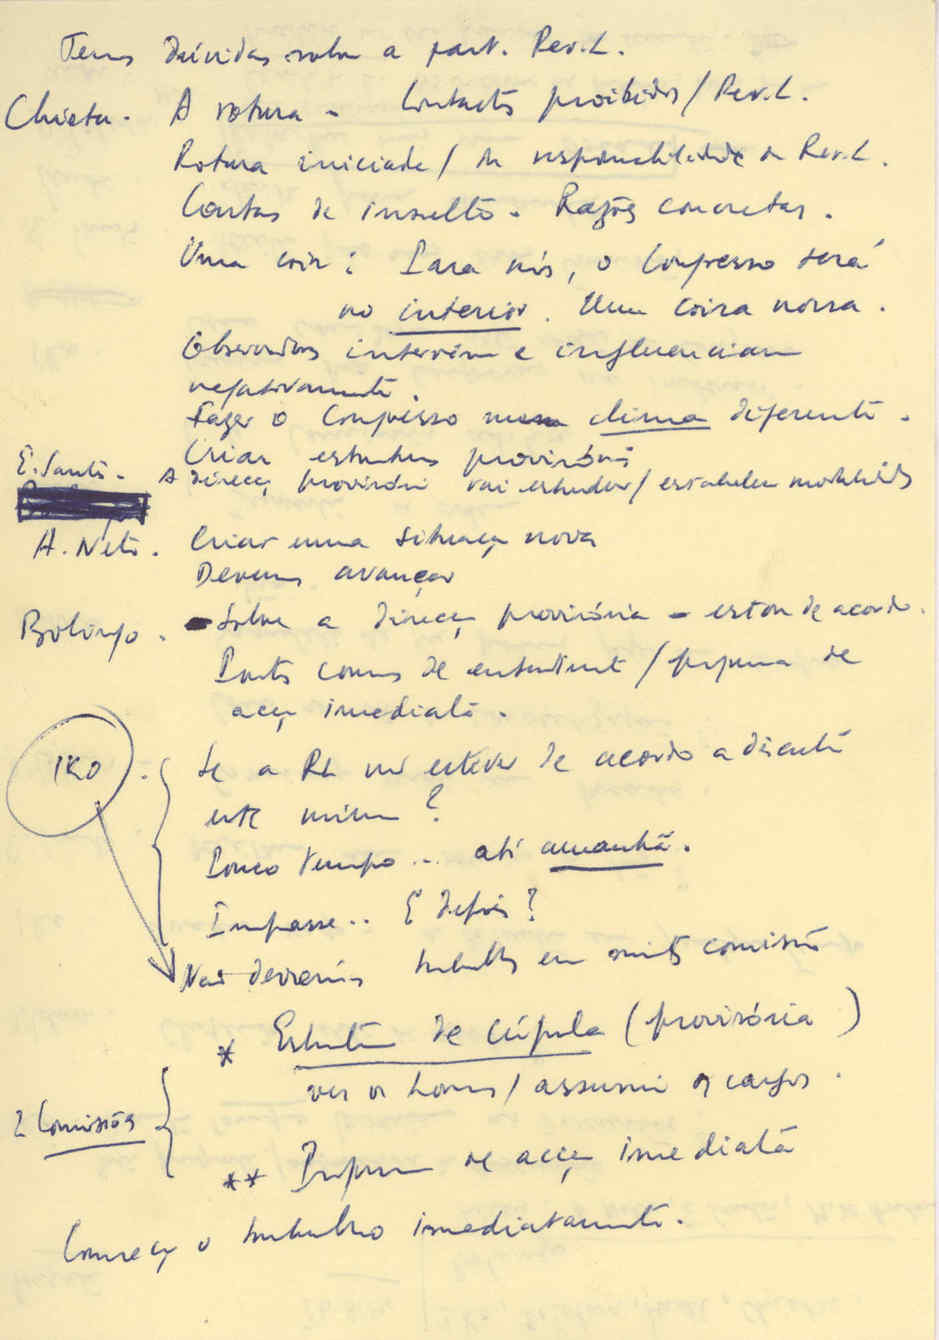 Temos dúvidas sobre a part. Rev. L.
Chieta. A rotura - Contactos proibidos / Rev. L.
Rotura iniciada / da responsabilidade da Rev. L.
Contas de insulto. Razões concretas.
Uma coisa: Para nós, o Congresso será
no interior. Uma coisa nossa.
Observadores intervêm e influenciam
negativamente.
Fazer o Congresso num clima diferente.
Criar estruturas provisórias
E. Santos. A direcção provisória vai estudar / estabelecer modalidades
A. Neto. Criar uma situação nova
Devemos avançar
Bolingo. - Sobre a direcção provisória - estou de acordo.
Pontos comuns de entendimento / programa de
acção imediata.
IKO. Se a RL não estiver de acordo a discutir
este mínimo?
Pouco tempo... até amanhã.
Impasse.. E depois?
Nós deveríamos trabalhar em muitas comissões
* Estrutura de Cúpula (provisória)
ver os homens / assumir os cargos.
2 Comissões
** Programa de acção imediata
Começar o trabalho imediatamente.